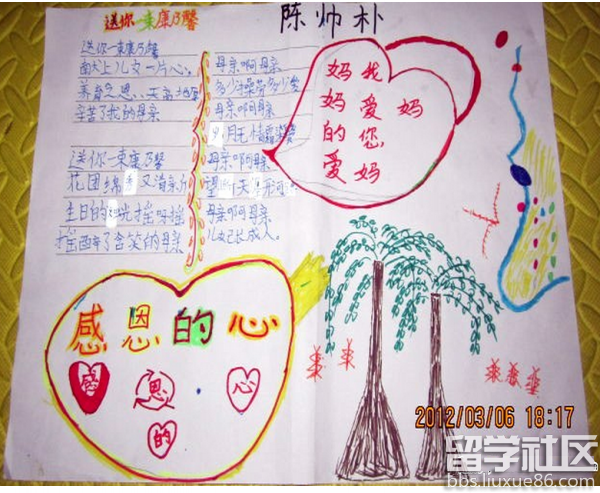 送你一束康乃馨
陈帅朴
送你一束康乃馨
献上儿女一片心。
养育之恩、天高地厚
辛苦了我的母亲
送你一束康乃馨
花团锦 又清
生日的 光摇呀摇
摇醉了含笑的母亲
母亲啊母亲
多少操劳多少
母亲啊母亲
岁月无情
母亲啊母亲
母亲啊母亲
儿女已长成人。
妈妈的爱
我爱您妈妈
感恩的心
感恩的心
2012/03/06 18:17
留学社区
bbs.liuxue86.com